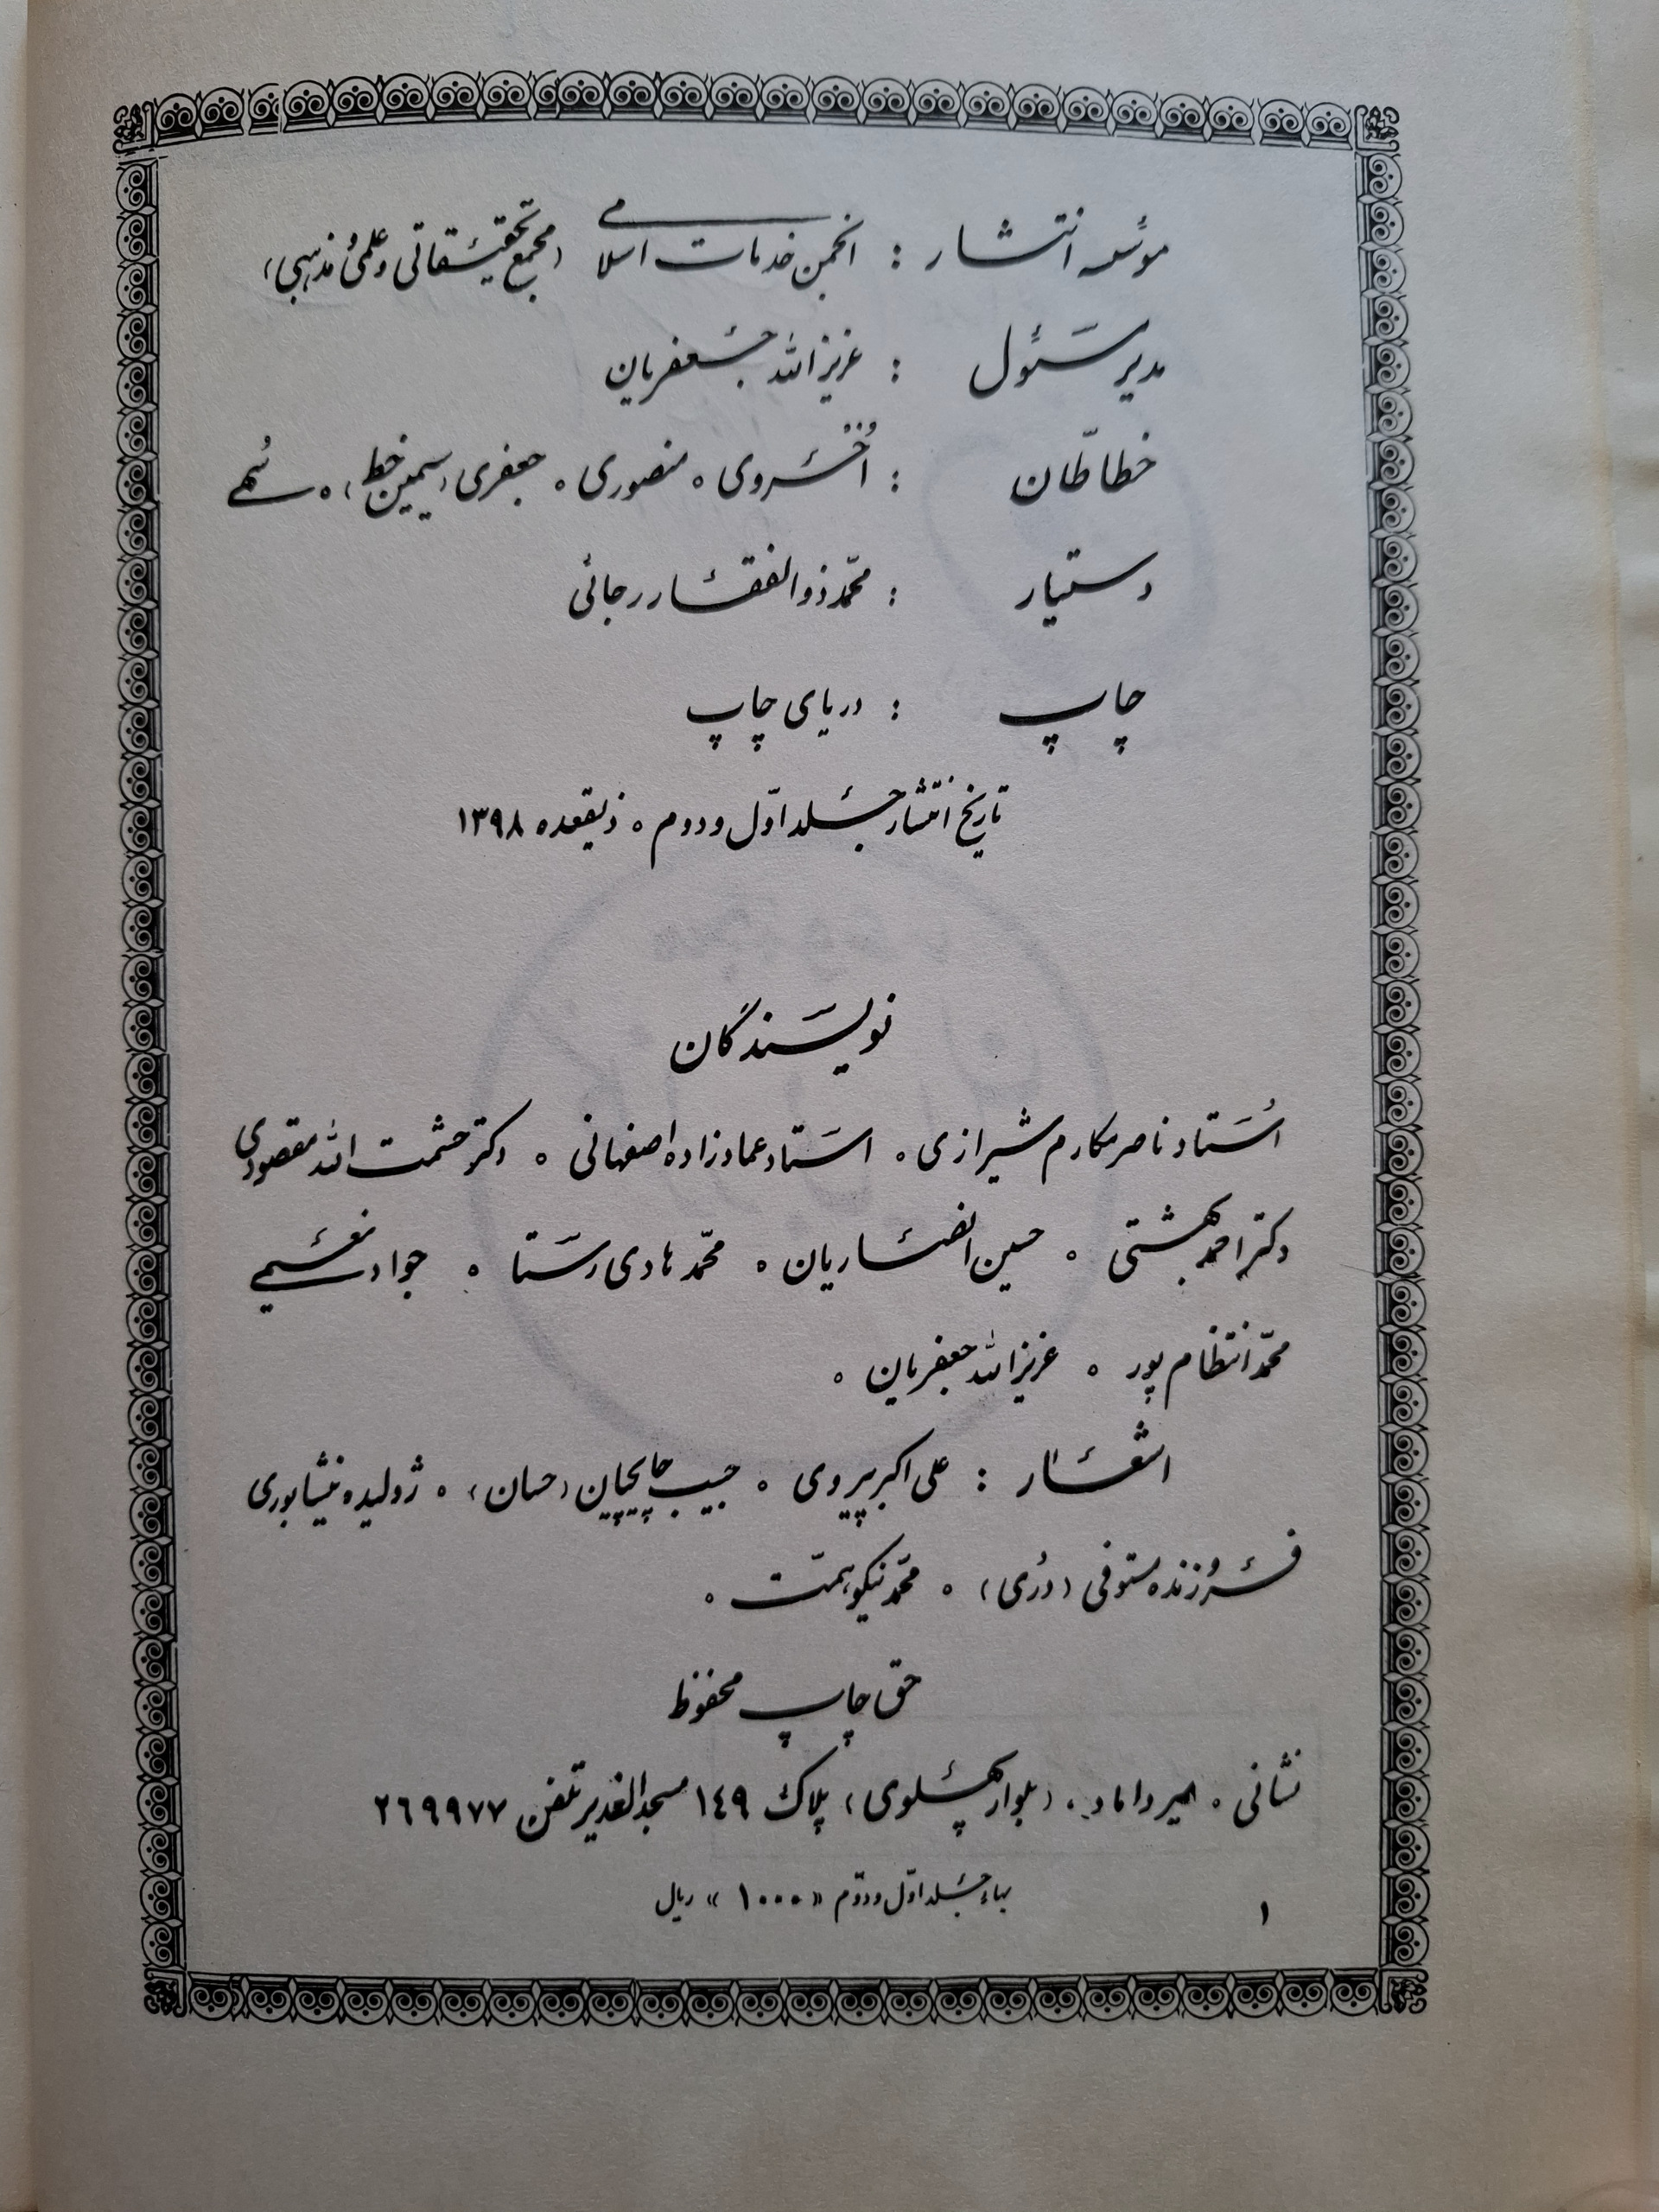 مؤسسه انتشار : انجمن خدمات اسلامی (مجمع تحقیقاتی و علمی مذهبی)
مدیر مسئول : عزیزالله جعفریان
خطاطان : اخسروی ٥ منصوری ٥ جعفری (سیمین خط) ٥
دستیار : محمد ذوالفقار رجائی
چاپ : دریای چاپ
تاریخ انتشار جلد اوّل و دوم ٥ ذیقعده ۱۳۹۸
نویسندگان
اُستاد ناصر مکارم شیرازی ٥ استاد عمادزاده اصفهانی ٥ دکتر حشمت الله مقصودی
دکتر احمد بهشتی ٥ حسین انصاریان ٥ محمّد هادی رستا ٥ جواد نعیمی
محمّد انتظام پور ٥ عزیزالله جعفریان ٥
اشعار : علی اکبر پیروی ٥ حبیب چایچیان (حسان) ٥ ژولیده نیشابوری
فروزنده مستوفی (درّی) ٥ محمّد نیکو همّت ٥
حق چاپ محفوظ
نشانی ٥ میرداماد ٥ (بلوار پهلوی) پلاک ۱٤۹ مسجد الغدیر تلفن ۲٦۹۹۷۷
بهاء جلد اوّل و دوّم «۱۰۰۰» ریال
۱